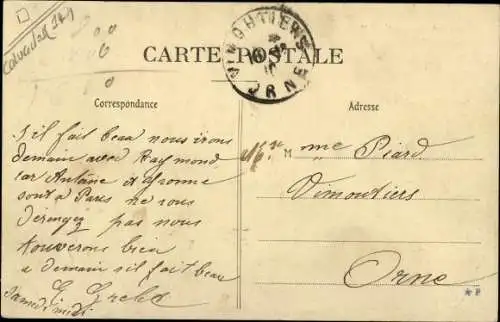 Calvados (14)
VIMOUTIERS
ORNE
CARTE POSTALE
Correspondance
Adresse
S'il fait beau nous irons
demain avec Raymond
car Antoine et Yvonne
sont à Paris ne vous
dérengez pas nous
trouverons bien
a demain s'il fait beau
Samedi midi
M me Piard
Vimoutiers
Orne